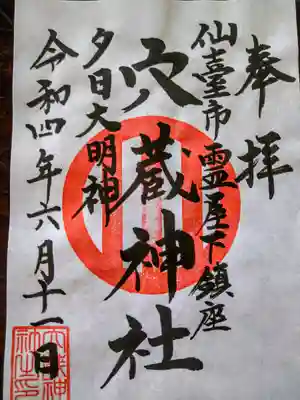 奉拝
仙臺市霊屋下鎮座
穴蔵神社
夕日大明神
令和四年六月十一日